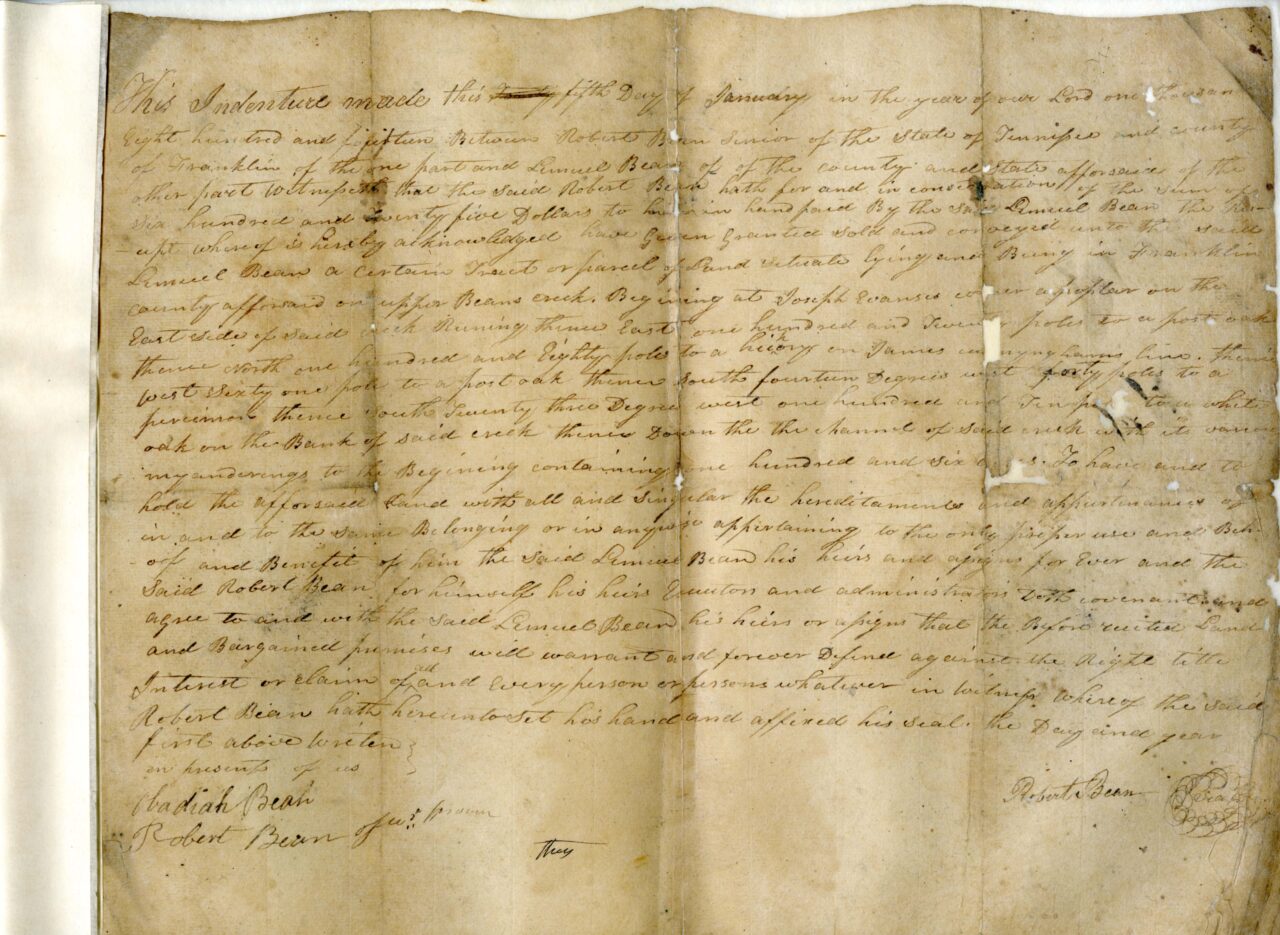 This Indenture made this fifth Day of January in the year of our Lord one Thousan
Eight hundred and fifteen Between Robert Bean Senior of the State of Tennissee and county
of Franklin of the one part and Lemuel Bean of of the county and State afforsaid of the
other part Witnesseth that the said Robert Bean hath for and in consideration of the sum of
Six hundred and twenty five Dollars to him in hand paid By the said Lemuel Bean the Rec-
-eipt whereof is hereby acknowledged have Given Granted Sold and conveyed unto the said
Lemuel Bean a certain Tract or parcel of Land situate lying and Being in Franklin
county afforsaid on upper Beans creek. Begining at Joseph Evanses corner a poplar on the
East side of said creek Runing thence East one hundred and Twenty poles to a post oak
thence North one hundred and Eighty poles to a hickory on James line. thence
west Sixty one pole to a post oak thence South fourteen Degrees west forty poles to a
persimon thence South Seventy three Degree west one hundred and Ten to a whit
oak on the Bank of said creek thence Down the the channel of said creek with its various
myanderings to the Begining containing one hundred and six acres. To have and to
hold the afforsaid Land with all and singular the hereditaments and appurtenances of
in and to the same Belonging or in anywise appertaining to the only proper use and Beh-
-oof and Benefit of him the said Lemuel Bean his heirs and assigns for Ever and the
Said Robert Bean for himself his heirs Executors and administrators Doth covenant and
agree to and with the said Lemuel Bean his heirs or assigns that the Before recited Land
and Bargained premises will warrant and forever Defend against the Right title
Interest or claim of all and Every person or persons whatever in Witness whereof the said
Robert Bean hath hereunto set his hand and affixed his seal. the Day and year
first above Wreten
in presents of us
Obadiah Bean
Robert Bean Seal
Robert Bean of